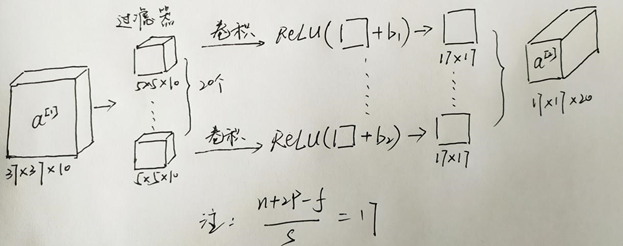 过滤器
卷积 ReLU(□+b₁) → 17×17
5×5×10
20个
a^[1]
37×37×10
a^[2]
17×17×20
卷积 ReLU(□+b₂) → 17×17
5×5×10
注: (n+2P-f)/s = 17